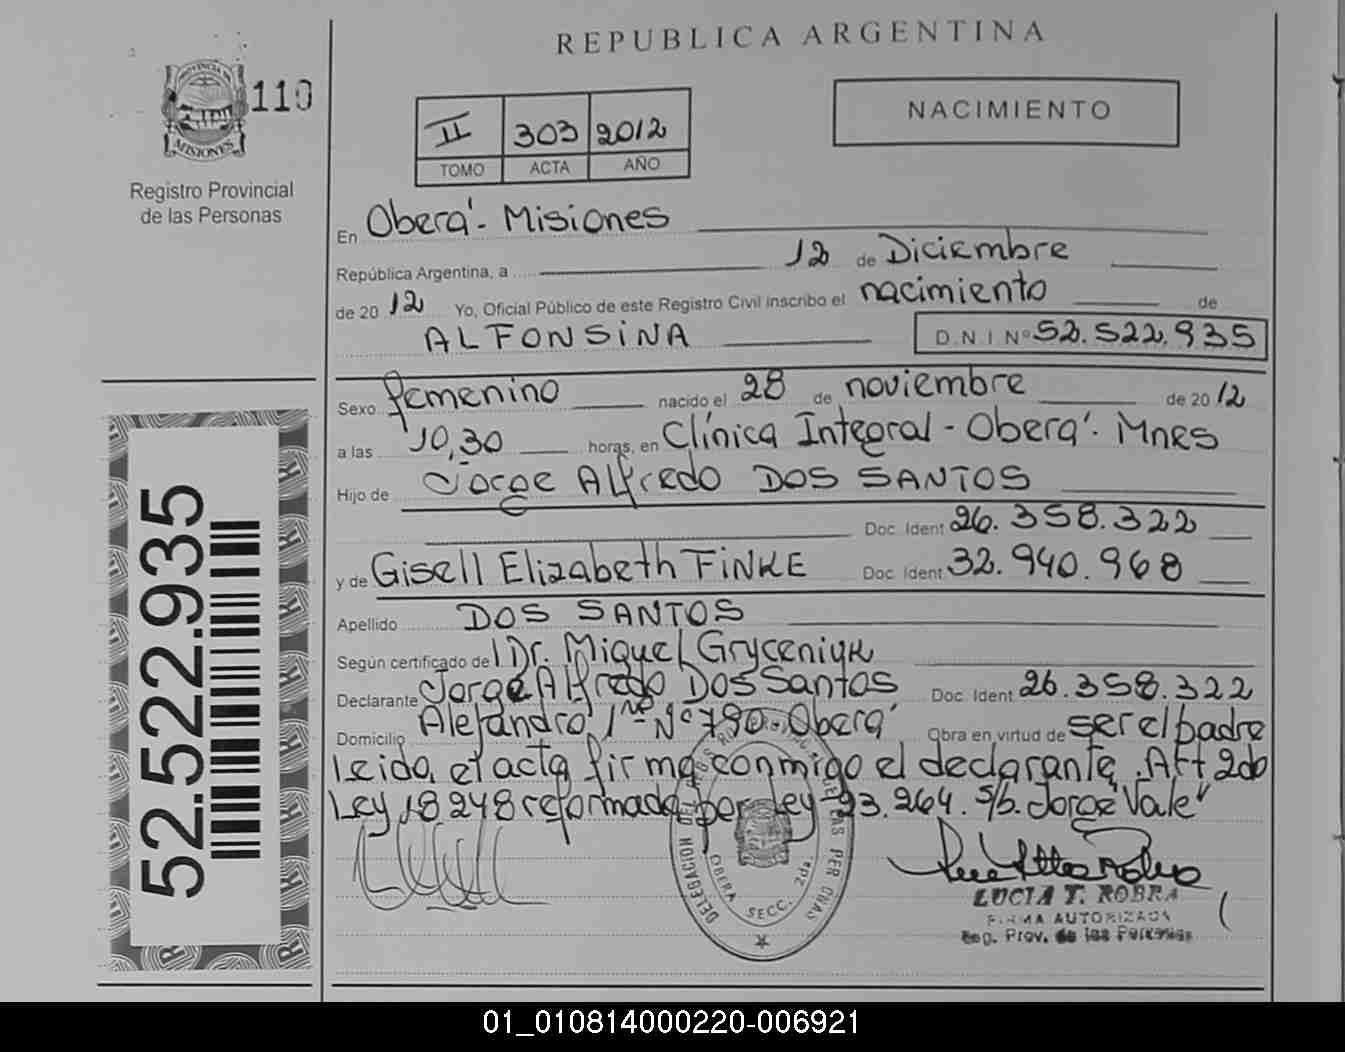 REPUBLICA ARGENTINA
PROVINCIA DE
MISIONES
110
Registro Provincial
de las Personas
II 303 2012
TOMO ACTA AÑO
NACIMIENTO
En Oberá - Misiones
República Argentina, a 12 de Diciembre
de 20 12 Yo, Oficial Público de este Registro Civil inscribo el nacimiento de
ALFONSINA D.N.I Nº 52.522.935
Sexo femenino nacido el 28 de noviembre de 20 12
a las 10,30 horas, en Clínica Integral - Oberá - Mnes
Hijo de Jorge Alfredo DOS SANTOS
Doc. Ident. 26.358.322
y de Gisell Elizabeth FINKE Doc. Ident. 32.940.968
Apellido DOS SANTOS
Según certificado de Dr. Miguel Gryceniuk
Declarante Jorge Alfredo Dos Santos Doc. Ident 26.358.322
Domicilio Alejandro Nº 790 - Oberá Obra en virtud de ser el padre
Leida el acta firma conmigo el declarante. Art 2do
Ley 18248 reformada por Ley 23.264. s/b. Jorge "Vale"
OBERA SECC. 2da.
LUCIA T. ROBRA
FIRMA AUTORIZADA
Reg. Prov. de las Personas
52.522.935
01_010814000220-006921